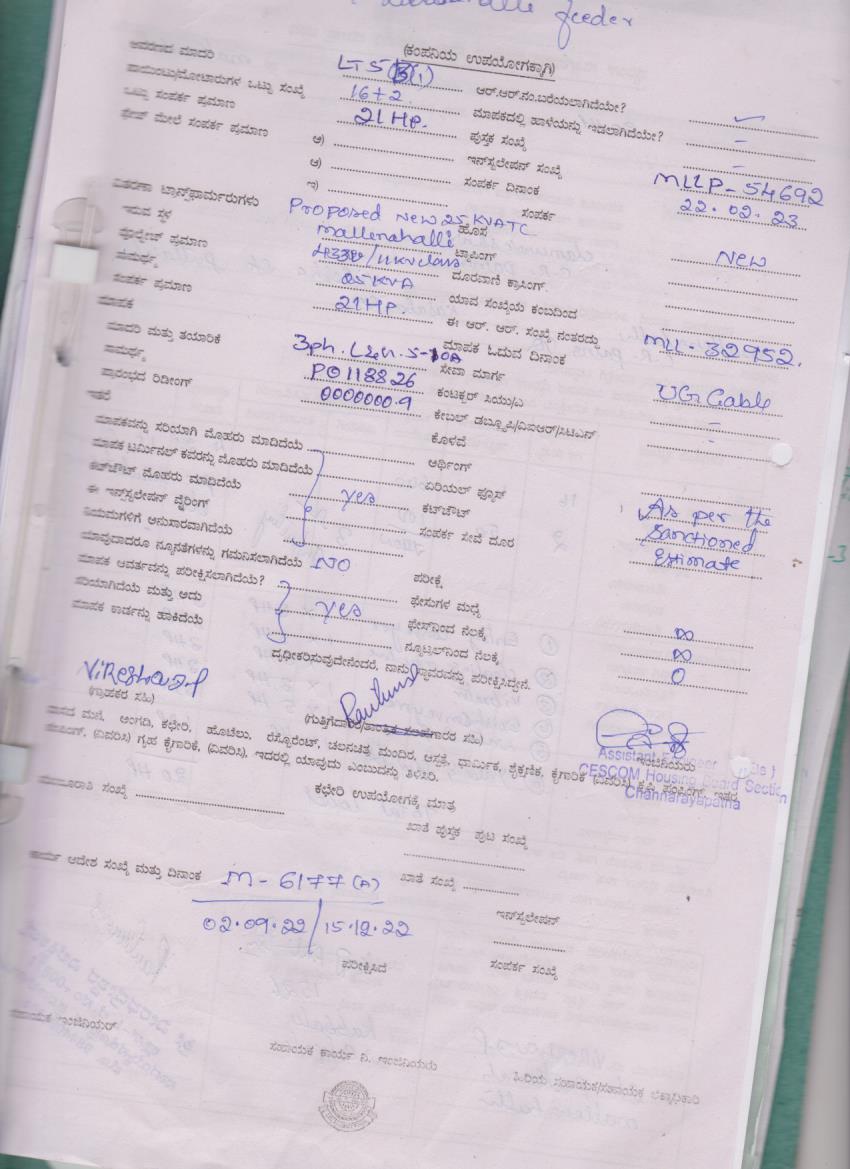 feeder
(ಕಂಪನಿಯ ಉಪಯೋಗಕ್ಕಾಗಿ)
ಆವರಣದ ಮಾದರಿ LT5 ಆರ್.ಆರ್.ನಂ.ಬರೆಯಲಾಗಿದೆಯೇ?
ಪಾಯಿಂಟ್ಸು/ಮೋಟಾರುಗಳ ಒಟ್ಟು ಸಂಖ್ಯೆ 16+2 ಮಾಪಕದಲ್ಲಿ ಹಾಳೆಯನ್ನು ಇಡಲಾಗಿದೆಯೇ? -
ಒಟ್ಟು ಸಂಪರ್ಕ ಪ್ರಮಾಣ 21 HP. ಪುಸ್ತಕ ಸಂಖ್ಯೆ -
ಫೇಸ್ ಮೇಲೆ ಸಂಪರ್ಕ ಪ್ರಮಾಣ ಅ) ಇನ್‌ಸ್ಟಲೇಷನ್ ಸಂಖ್ಯೆ MLLP-54692
ಆ) ಸಂಪರ್ಕ ದಿನಾಂಕ 22.02.23
ಇ) ಸಂಪರ್ಕ
ವಿತರಣಾ ಟ್ರಾನ್ಸ್‌ಫಾರ್ಮರುಗಳು Proposed New 25 KVA TC ಹೊಸ New
ಇರುವ ಸ್ಥಳ mallenahalli ಟ್ಯಾಪಿಂಗ್
ವೋಲ್ಟೇಜ್ ಪ್ರಮಾಣ /11KV class ದೂರವಾಣಿ ಕ್ರಾಸಿಂಗ್
ಸಾಮರ್ಥ್ಯ 25 KVA ಯಾವ ಸಂಖ್ಯೆಯ ಕಂಬದಿಂದ
ಸಂಪರ್ಕ ಪ್ರಮಾಣ 21 HP. ಈ ಆರ್. ಆರ್. ಸಂಖ್ಯೆ ನಂತರದ್ದು MLL-32952.
ಮಾಪಕ ಮಾಪಕ ಓದುವ ದಿನಾಂಕ
ಮಾದರಿ ಮತ್ತು ತಯಾರಿಕೆ 3ph. L&G. ಸೇವಾ ಮಾರ್ಗ UG Cable
ಸಾಮರ್ಥ್ಯ PO118826 ಕಂಟಕ್ಟರ್ ಸಿಯು/ಎ -
ಪ್ರಾರಂಭದ ರಿಡೀಂಗ್ 0000000.9 ಕೇಬಲ್ ಡಬ್ಲ್ಯೂಪಿ/ಐಆರ್/ಸಿಟಿಎನ್ -
ಇತರೆ ಕೊಳವೆ
ಮಾಪಕವನ್ನು ಸರಿಯಾಗಿ ಮೊಹರು ಮಾಡಿದೆಯೆ ಆರ್ಥಿಂಗ್
ಮಾಪಕ ಟರ್ಮಿನಲ್ ಕವರನ್ನು ಮೊಹರು ಮಾಡಿದೆಯೆ ಏರಿಯಲ್ ಫ್ಯೂಸ್
ಕಟ್‌ಔಟ್ ಮೊಹರು ಮಾಡಿದೆಯೆ yes ಕಟ್‌ಔಟ್ As per the
ಈ ಇನ್‌ಸ್ಟಲೇಷನ್ ವೈರಿಂಗ್ ಸಂಪರ್ಕ ಸೇವೆ ದೂರ Sanctioned
ನಿಯಮಗಳಿಗೆ ಅನುಸಾರವಾಗಿದೆಯೆ Estimate
ಯಾವುದಾದರೂ ನ್ಯೂನತೆಗಳನ್ನು ಗಮನಿಸಲಾಗಿದೆಯೆ NO ಪರೀಕ್ಷೆ
ಮಾಪಕ ಆವರ್ತವನ್ನು ಪರೀಕ್ಷಿಸಲಾಗಿದೆಯೆ? ಫೇಸುಗಳ ಮಧ್ಯೆ ∞
ಸರಿಯಾಗಿದೆಯೆ ಮತ್ತು ಅದು yes ಫೇಸ್‌ನಿಂದ ನೆಲಕ್ಕೆ ∞
ಮಾಪಕ ಕಾರ್ಡನ್ನು ಹಾಕಿದೆಯೆ ನ್ಯೂಟ್ರಲ್‌ನಿಂದ ನೆಲಕ್ಕೆ 0
ದೃಢೀಕರಿಸುವುದೇನೆಂದರೆ, ನಾನು ಸ್ಥಾವರವನ್ನು ಪರೀಕ್ಷಿಸಿದ್ದೇನೆ.
(ಗ್ರಾಹಕರ ಸಹಿ) (ಗುತ್ತಿಗೆದಾರರ ಸಹಿ)
Assistant Engineer
CESCOM Housing Board Section
Channarayapatna
ವಾಸದ ಮನೆ, ಅಂಗಡಿ, ಕಛೇರಿ, ಹೊಟೇಲು, ರೆಸ್ಟೋರೆಂಟ್, ಚಲನಚಿತ್ರ ಮಂದಿರ, ಆಸ್ಪತ್ರೆ, ಧಾರ್ಮಿಕ, ಶೈಕ್ಷಣಿಕ, ಕೈಗಾರಿಕೆ (ವಿವರಿಸಿ)
(ವಿವರಿಸಿ) ಗೃಹ ಕೈಗಾರಿಕೆ, (ವಿವರಿಸಿ), ಇದರಲ್ಲಿ ಯಾವುದು ಎಂಬುದನ್ನು ತಿಳಿಸಿರಿ.
ಕಛೇರಿ ಉಪಯೋಗಕ್ಕೆ ಮಾತ್ರ
ಮಂಜೂರಾತಿ ಸಂಖ್ಯೆ ಖಾತೆ ಪುಸ್ತಕ ಪುಟ ಸಂಖ್ಯೆ
ಕಾರ್ಯ ಆದೇಶ ಸಂಖ್ಯೆ ಮತ್ತು ದಿನಾಂಕ M-6177(A) ಖಾತೆ ಸಂಖ್ಯೆ
02.09.22/15.12.22 ಇನ್‌ಸ್ಟಲೇಷನ್
ಪರೀಕ್ಷಿಸಿದೆ ಸಂಪರ್ಕ ಸಂಖ್ಯೆ
ಸಹಾಯಕ ಇಂಜಿನಿಯರ್ ಸಹಾಯಕ ಕಾರ್ಯ ನಿ. ಇಂಜಿನಿಯರು ಹಿರಿಯ ಸಹಾಯಕ/ಸಹಾಯಕ ಲೆಕ್ಕಾಧಿಕಾರಿ